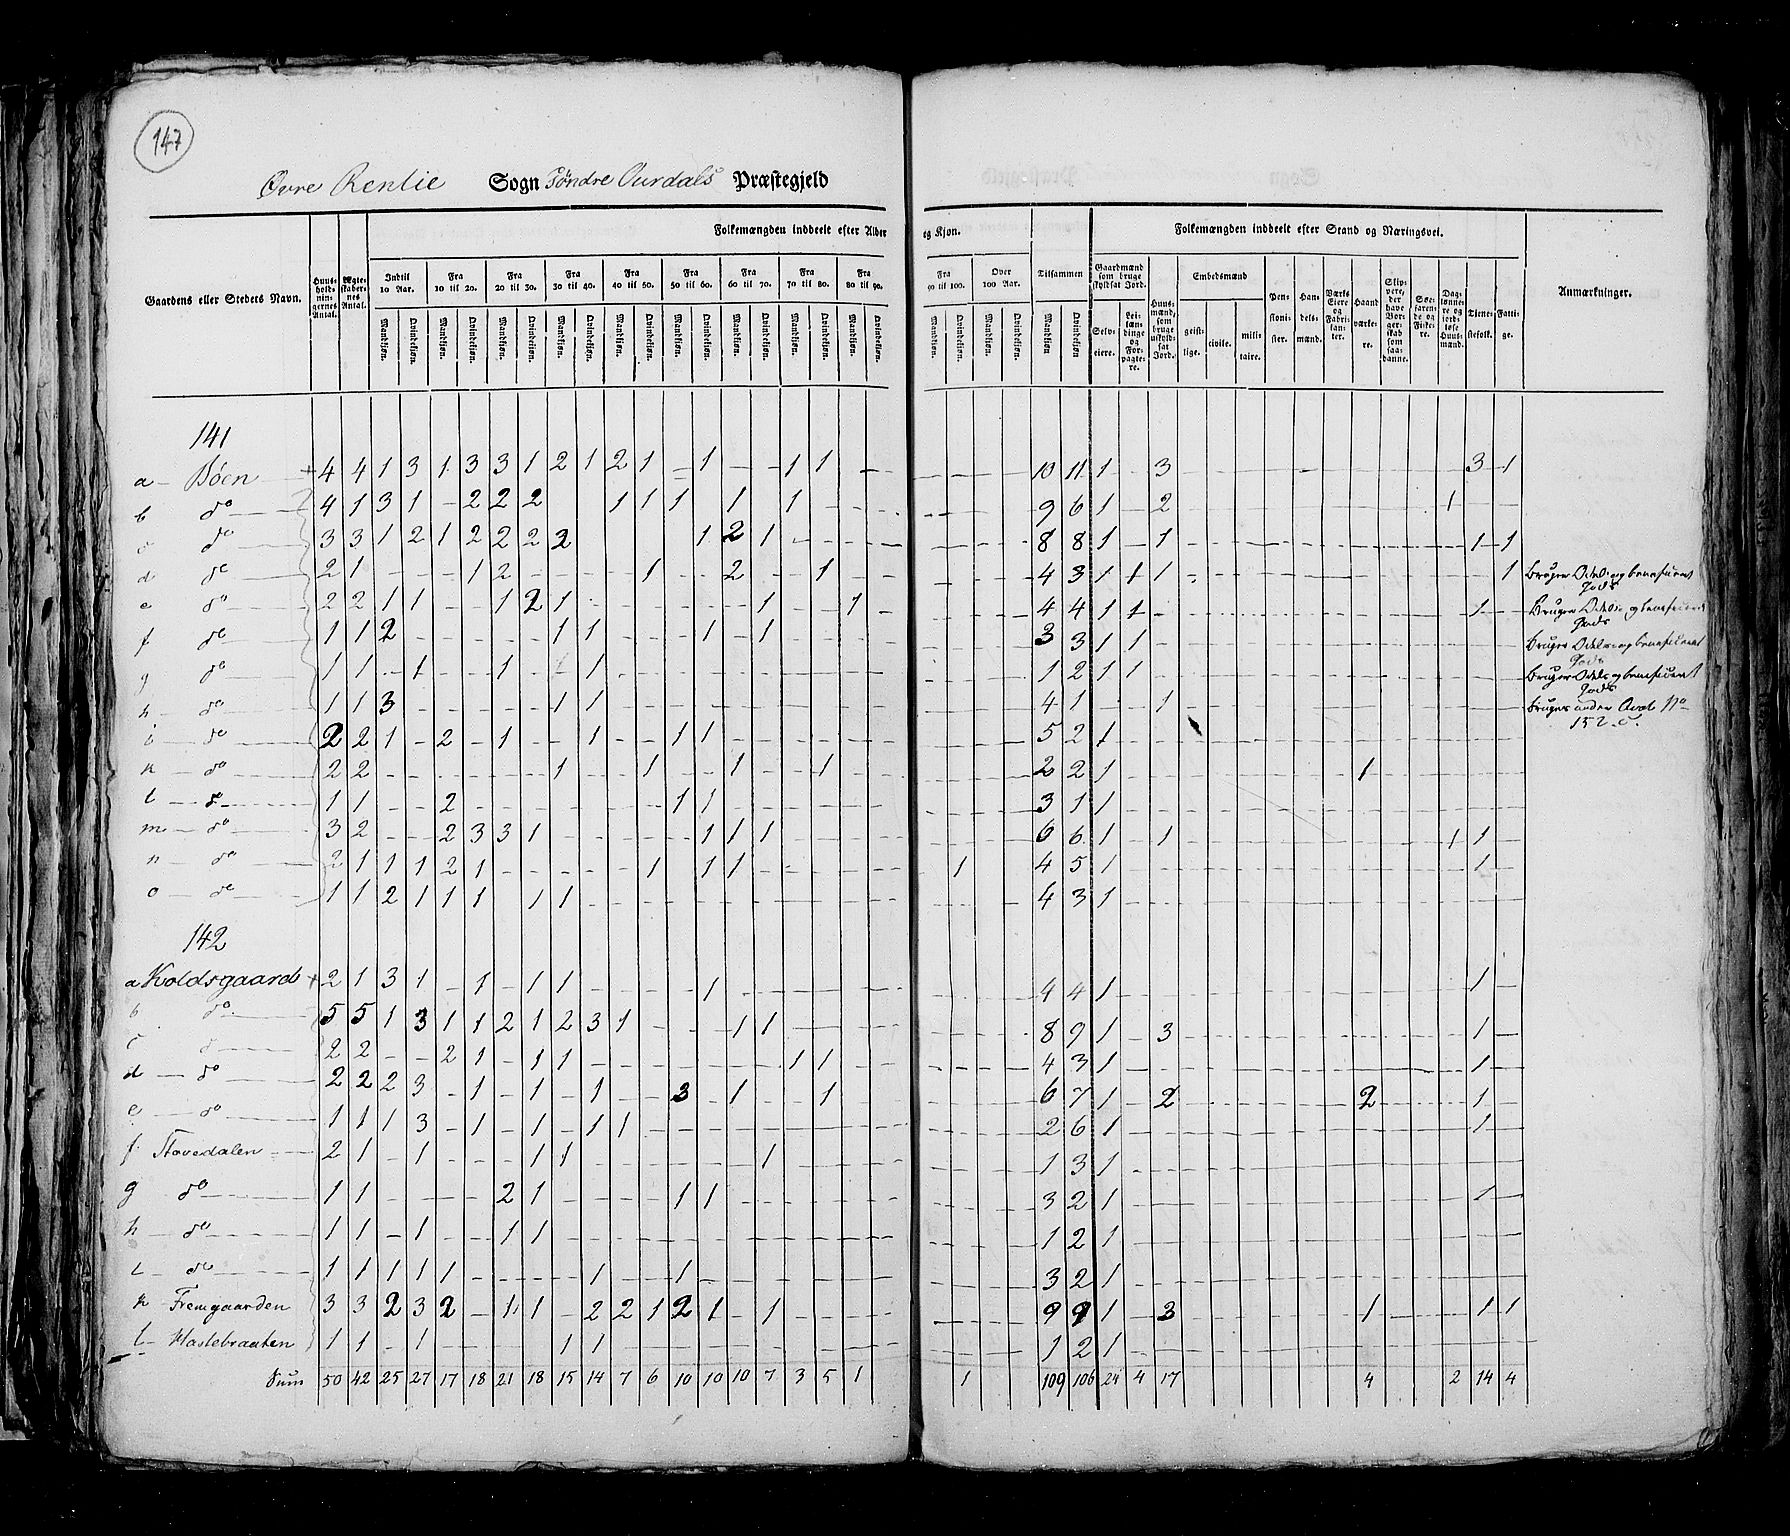 147
Øvre Renlie Sogn Søndre Ourdals Præstegjeld
Folkemængden inddeelt efter Alder og Kjøn. Folkemængden inddeelt efter Stand og Næringsvei.
Gaardens eller Stedets Navn. Huusholdningernes Antal. Ægteskabernes Antal. Indtil 10 Aar. Fra 10 til 20. Fra 20 til 30. Fra 30 til 40. Fra 40 til 50. Fra 50 til 60. Fra 60 til 70. Fra 70 til 80. Fra 80 til 90. Fra 90 til 100. Over 100 Aar. Tilsammen Gaardmænd som bruge skyldsat Jord. Huusmænd, som bruge uskyldsat Jord. Embedsmænd Pensionister. Handelsmænd. Værks Eiere og Fabrikanter. Haandværkere. Skippere, der have Borgerskab som saadanne. Søefarende og Fiskere. Daglønnere og jordløse Huusmænd. Tjenestefolk. Fattige. Anmærkninger.
Mandkjøn. Qvindekjøn. Mandkjøn. Qvindekjøn. Mandkjøn. Qvindekjøn. Mandkjøn. Qvindekjøn. Mandkjøn. Qvindekjøn. Mandkjøn. Qvindekjøn. Mandkjøn. Qvindekjøn. Mandkjøn. Qvindekjøn. Mandkjøn. Qvindekjøn. Mandkjøn. Qvindekjøn. Mandkjøn. Qvindekjøn. Mandkjøn Qvindekjøn Selveiere. Leilændinge og Forpagtere. geistlige. civile. militaire.
141
a - Böen 4 4 1 3 1 3 3 1 2 1 2 1 - 1 - - 1 1 - - 10 11 1 - 3 3 1
b d° 4 1 3 1 - 2 2 2 1 1 1 1 1 9 6 1 - 2 1
c d° 3 3 1 2 1 2 2 2 2 1 2 1 8 8 1 - 1 1 1
d d° 2 1 1 2 1 2 1 4 3 1 1 1 1 Bruger Odels og beneficeret Gods
e d° 2 2 1 1 1 2 1 1 1 4 4 1 1 1 Bruger Odels og beneficeret Gods
f d° 1 1 2 1 1 1 1 3 3 1 1 Bruger Odels og beneficeret Gods
g d° 1 1 - 1 1 1 1 2 1 1 Bruger Odels og beneficeret Gods
h d° 1 1 3 1 1 4 1 1 Bruges under N° 152. c.
i d° 2 2 1 - 2 - 1 1 1 1 5 2 1
k d° 2 2 1 1 1 1 2 2 1 1
l d° 1 1 2 1 1 3 1 1
m d° 3 2 2 3 3 1 1 1 1 6 6 1 1 1 1
n d° 2 1 1 1 2 1 1 1 1 1 4 5 1 1
o d° 1 1 2 1 1 1 1 1 4 3 1
142
a Koldsgaard 2 1 3 1 - 1 - 1 1 1 4 4 1 1
b d° 5 5 1 3 1 1 2 1 2 3 1 1 1 8 9 1 - 3 1
c 2 2 2 1 - 1 1 1 1 4 3 1 1
d d° 2 2 2 3 - 1 - 1 - 1 3 - 1 1 6 7 1 - 2 2 1
e d° 1 1 1 3 - 1 - 1 - 1 1 2 6 1 1
f Stavedalen 2 1 - 1 1 1 1 1 3 1
g d° 1 1 2 1 1 1 3 2 1 1
h d° 1 1 - 1 1 1 1 2 1
i d° 1 1 1 1 1 1 1 3 2 1
k Fremgaarden 3 3 2 3 2 - 1 1 - 2 2 1 2 1 - 1 9 9 1 - 3 1 1 1
l Haslebraaten 1 1 - 1 1 1 1 2 1
Sum 50 42 25 27 17 18 21 18 15 14 7 6 10 10 10 7 3 5 1 1 109 106 24 4 17 4 2 14 4